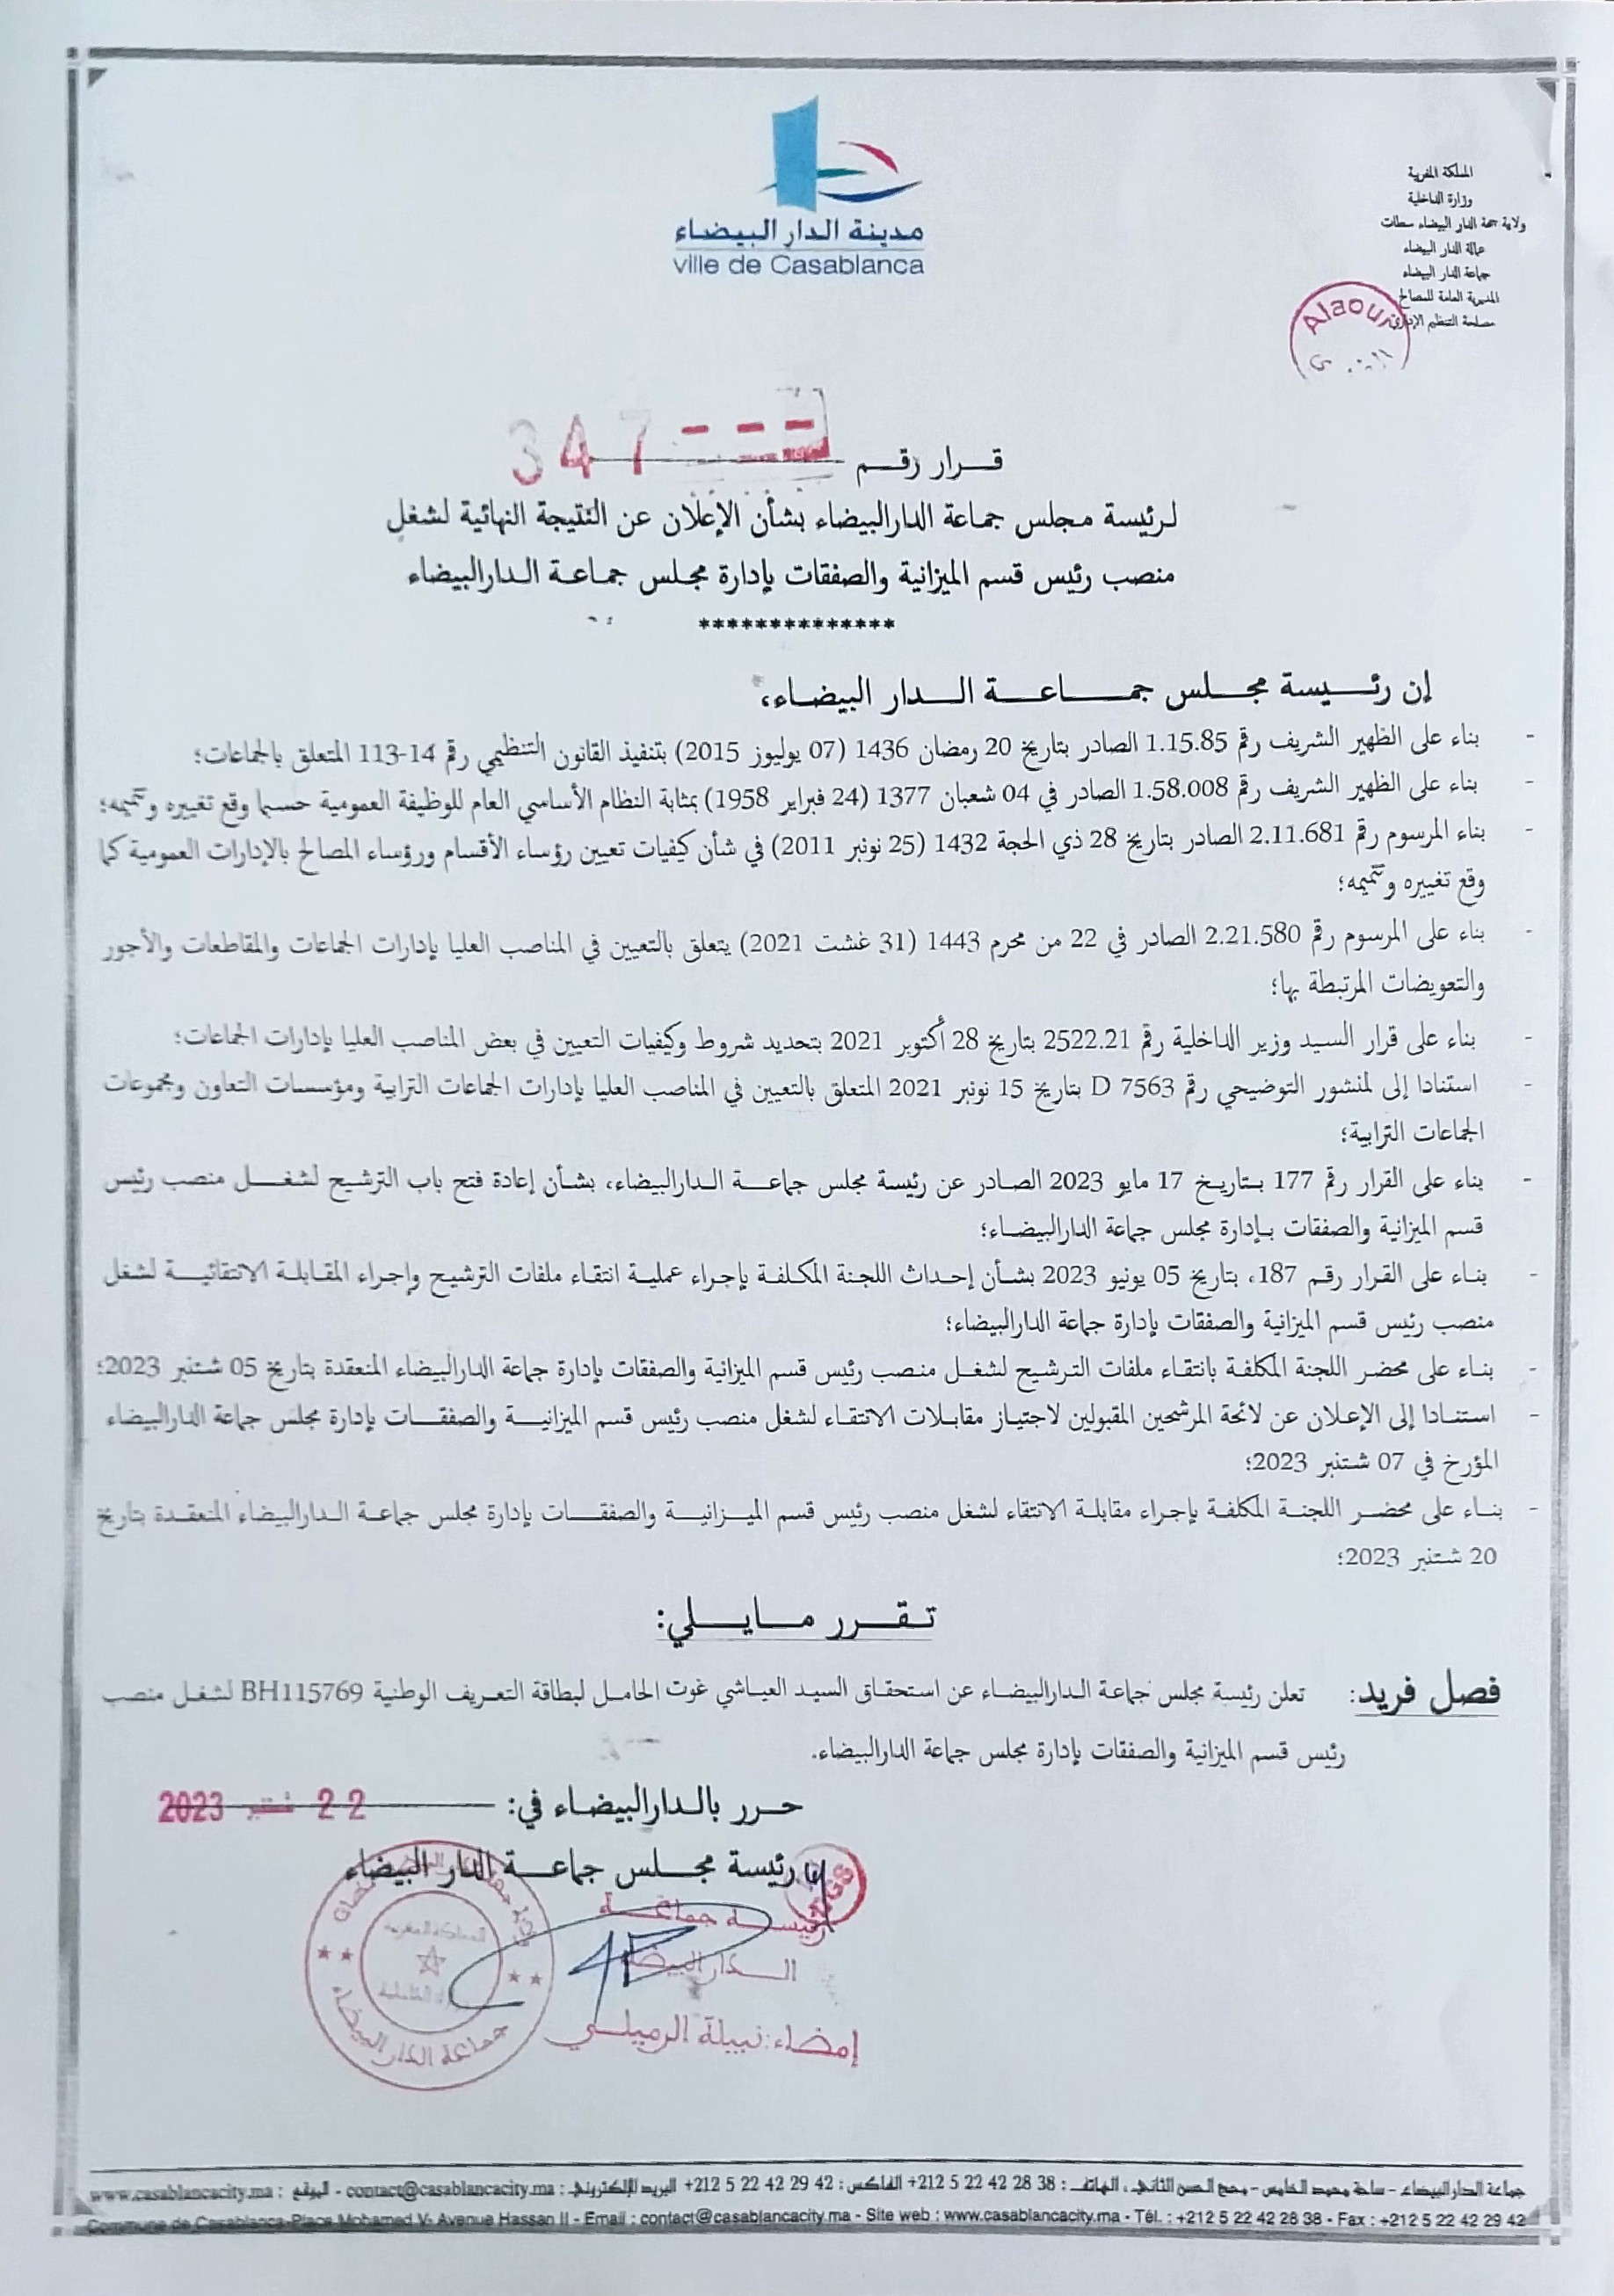 مدينة الدار البيضاء
ville de Casablanca
المملكة المغربية
وزارة الداخلية
ولاية جهة الدار البيضاء سطات
عمالة الدار البيضاء
جماعة الدار البيضاء
المديرية العامة للمصالح
مصلحة التنظيم الإداري
Alaoui
قـــرار رقـــم 347
لرئيسة مجلس جماعة الدارالبيضاء بشأن الإعلان عن النتيجة النهائية لشغل
منصب رئيس قسم الميزانية والصفقات بإدارة مجلس جماعة الدارالبيضاء
**************
إن رئـــيسة مجـلس جمـــاعـــة الـــدار البيضـاء،
- بناء على الظهير الشريف رقم 1.15.85 الصادر بتاريخ 20 رمضان 1436 (07 يوليوز 2015) بتنفيذ القانون التنظيمي رقم 14-113 المتعلق بالجماعات؛
- بناء على الظهير الشريف رقم 1.58.008 الصادر في 04 شعبان 1377 (24 فبراير 1958) بمثابة النظام الأساسي العام للوظيفة العمومية حسبما وقع تغييره وتتميمه؛
- بناء المرسوم رقم 2.11.681 الصادر بتاريخ 28 ذي الحجة 1432 (25 نونبر 2011) في شأن كيفيات تعيين رؤساء الأقسام ورؤساء المصالح بالإدارات العمومية كما
وقع تغييره وتتميمه؛
- بناء على المرسوم رقم 2.21.580 الصادر في 22 من محرم 1443 (31 غشت 2021) يتعلق بالتعيين في المناصب العليا بإدارات الجماعات والمقاطعات والأجور
والتعويضات المرتبطة بها؛
- بناء على قرار السيد وزير الداخلية رقم 2522.21 بتاريخ 28 أكتوبر 2021 بتحديد شروط وكيفيات التعيين في بعض المناصب العليا بإدارات الجماعات؛
- استنادا إلى لمنشور التوضيحي رقم D 7563 بتاريخ 15 نونبر 2021 المتعلق بالتعيين في المناصب العليا بإدارات الجماعات الترابية ومؤسسات التعاون ومجموعات
الجماعات الترابية؛
- بناء على القرار رقم 177 بـتاريـخ 17 مايو 2023 الصـادر عن رئيسة مجلس جماعـــة الـدارالبيضاء، بشـأن إعادة فتح باب الترشيح لشغـــل منصب رئيس
قسم الميزانية والصفقات بـإدارة مجلس جماعة الدارالبيضـاء؛
- بنـاء على القـرار رقـم 187، بتاريخ 05 يونيو 2023 بشـأن إحداث اللجنة المكـلفـة بإجراء عملية انتقـاء ملفات الترشيح وإجراء المقـابلـة الانتقائيـة لشغل
منصب رئيس قسم الميزانية والصفقات بإدارة جماعة الدارالبيضاء؛
- بنـاء على محضر اللجنة المكلفـة بانتقـاء ملفات الترشيح لشغـل منصب رئيس قسم الميزانية والصفقات بإدارة جماعة الدارالبيضاء المنعقدة بتاريخ 05 شتنبر 2023؛
- استنـادا إلى الإعـلان عن لائحة المرشحين المقبولين لاجتياز مقابـلات الانتقـاء لشغل منصب رئيس قسم الميزانيـــة والصفقـــات بإدارة مجلس جماعة الدارالبيضاء
المؤرخ في 07 شتنبر 2023؛
- بنـاء على محضـر اللجنـة المكلفـة بإجراء مقابلـة الانتقاء لشغل منصب رئيس قسم الميـزانيـــة والصفقـــات بإدارة مجلس جماعـة الـدارالبيضاء المنعقـدة بتاريخ
20 شتنبر 2023؛
تـقـــرر مـــايـــلي:
فصل فريد: تعلن رئيسة مجلس جماعة الدارالبيضـاء عن استحقـاق السيد العياشي غوت الحامل لبطاقة التعريف الوطنية BH115769 لشغـل منصب
رئيس قسم الميزانية والصفقات بإدارة مجلس جماعة الدارالبيضاء.
حـرر بالـدارالبيضـاء في: 22 شتنبر 2023
رئيسة مجـلس جماعـــة الدار البيضاء
DGS
رئيســـة جماعـــة
الـــدار البيضاء
إمضاء: نبيلة الرميلـي
المملكة المغربية
جماعة الدار البيضاء
جماعة الدار البيضاء - ساحة محمد الخامس - الهاتف : 38 28 42 22 5 212+ الفاكس : 42 29 42 22 5 212+ البريد الإلكتروني : contact@casablancacity.ma - الموقع : www.casablancacity.ma
Commune de Casablanca-Place Mohamed V- Avenue Hassan II - Email : contact@casablancacity.ma - Site web : www.casablancacity.ma - Tél. : +212 5 22 42 28 38 - Fax : +212 5 22 42 29 42